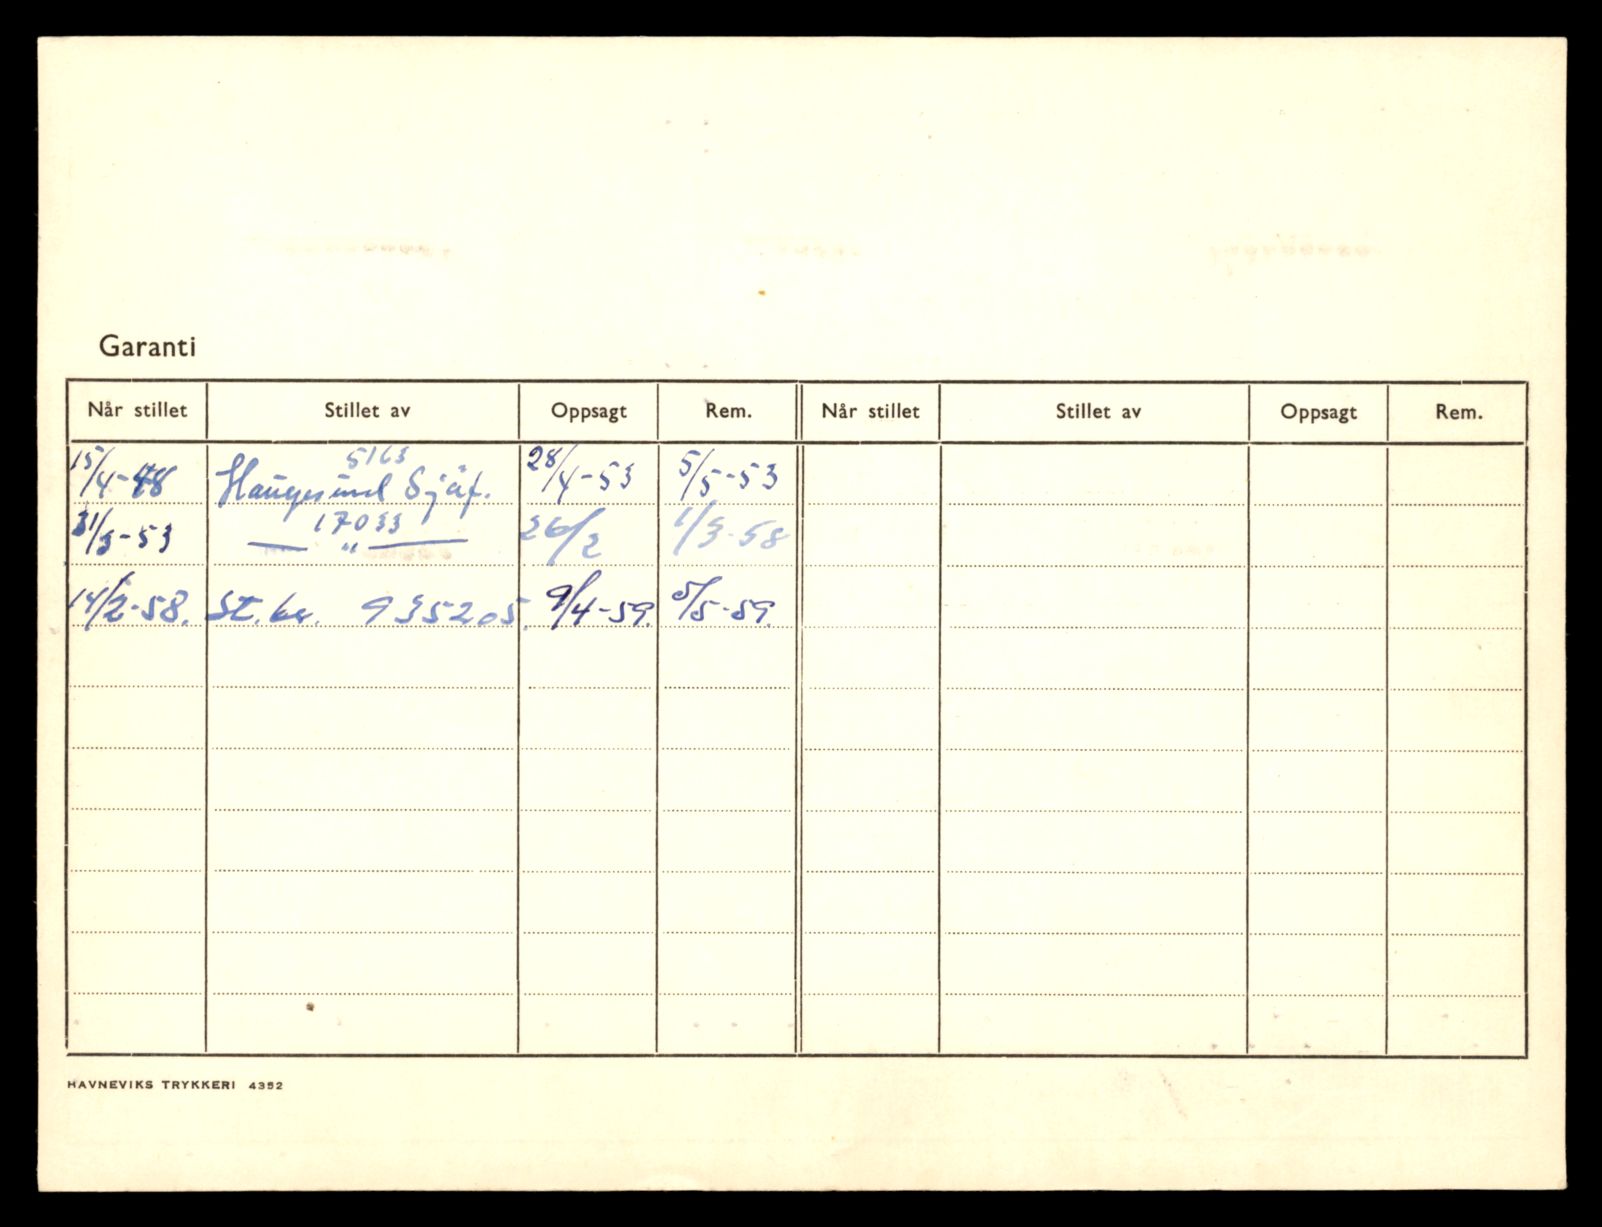 Garanti
Når stillet Stillet av Oppsagt Rem. Når stillet Stillet av Oppsagt Rem.
15/4-48 Haugesund Sjøf. 5163 28/4-53 5/5-53
31/3-53 — " — 17033 26/2 1/3-58
14/2-58. St. br. 935205. 9/4-59. 5/5-59.
HAVNEVIKS TRYKKERI 4352